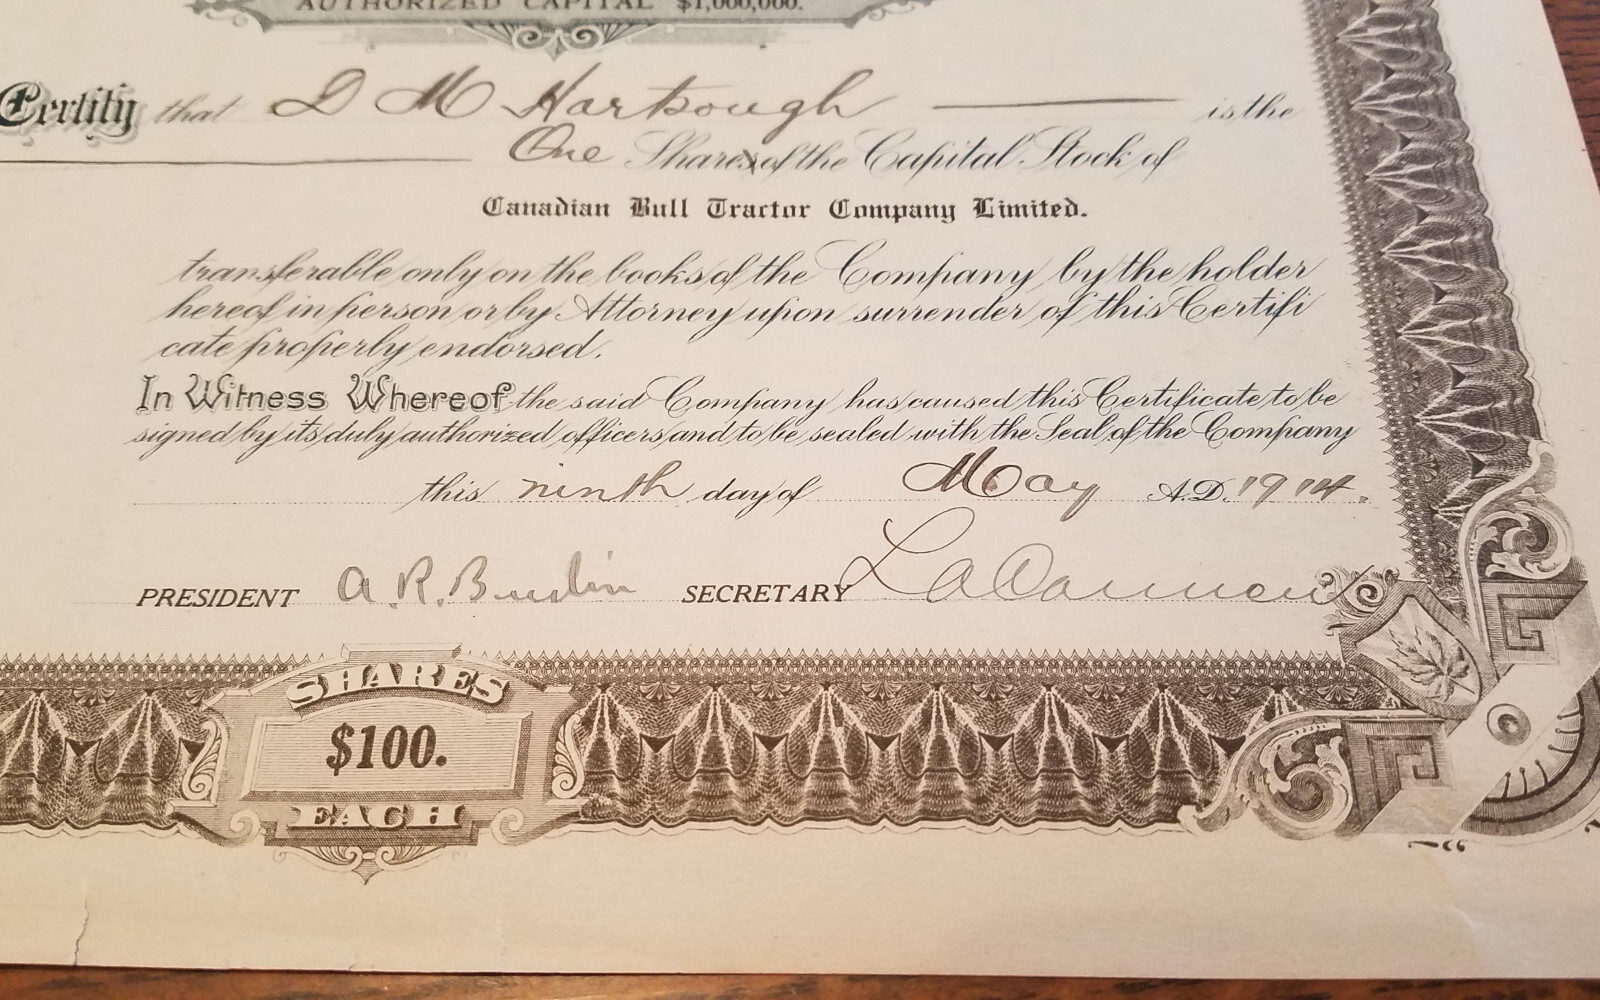 AUTHORIZED CAPITAL $1,000,000.
Certify that D M Harbough is the
One Shares of the Capital Stock of
Canadian Bull Tractor Company Limited.
transferable only on the books of the Company by the holder
hereof in person or by Attorney upon surrender of this Certifi
cate properly endorsed.
In Witness Whereof the said Company has caused this Certificate to be
signed by its duly authorized officers and to be sealed with the Seal of the Company
this ninth day of May A.D. 1914.
PRESIDENT A. R. SECRETARY
SHARES
$100.
EACH